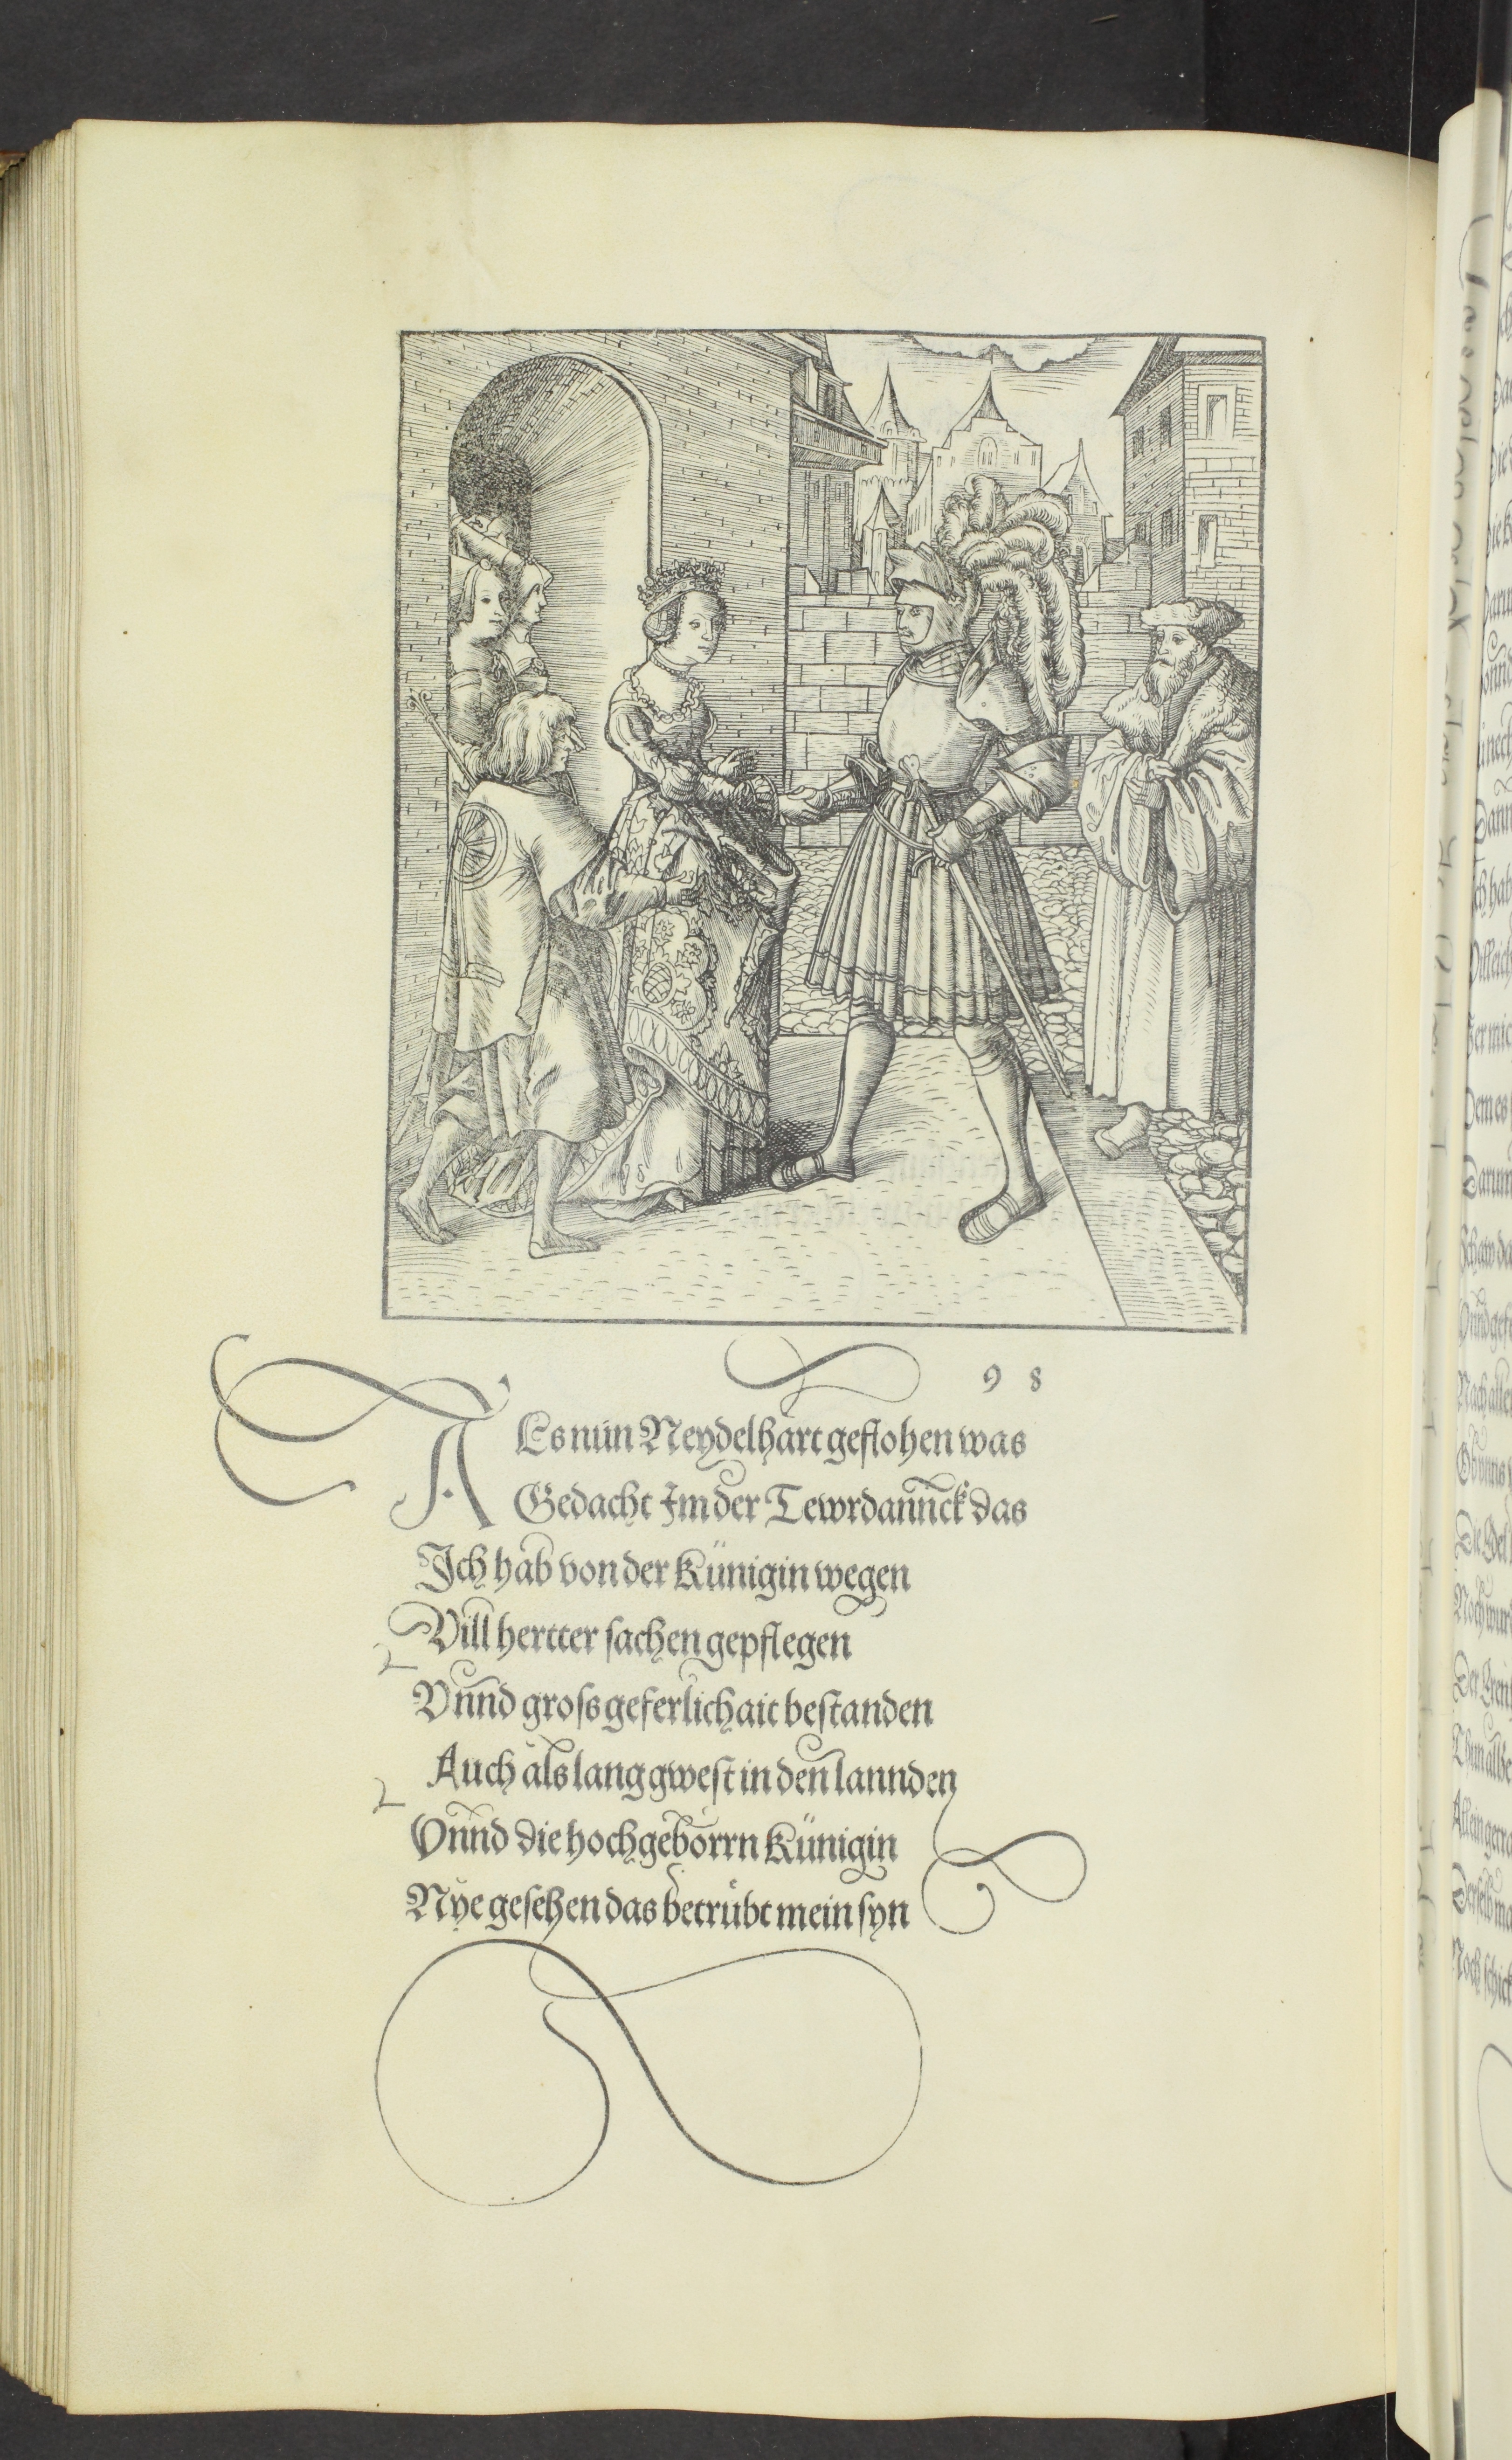 98
Als nun Neydelhart geflohen was
Gedacht Im der Tewrdannck das
Ich hab von der Künigin wegen
Vill hertter sachen gepflegen
Vnnd groſs geferlichait beſtanden
Auch als lang gweſt in den lannden
Vnnd die hochgeborrn Künigin
Nye geſehen das betrůbt mein ſyn